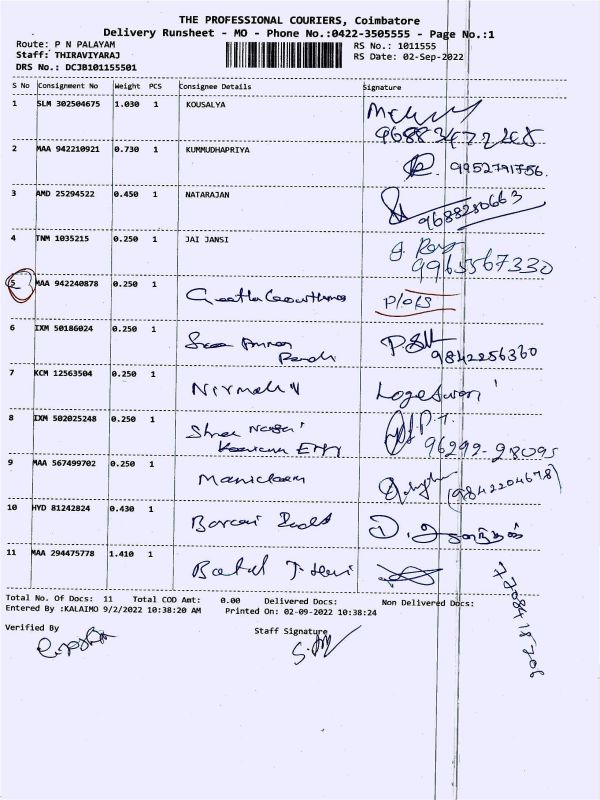 THE PROFESSIONAL COURIERS, Coimbatore
Delivery Runsheet - MO - Phone No.:0422-3505555 - Page No.:1
Route: P N PALAYAM RS No.: 1011555
Staff: THIRAVIYARAJ RS Date: 02-Sep-2022
DRS No.: DCJB101155501
S No Consignment No Weight PCS Consignee Details Signature
1 SLM 302504675 1.030 1 KOUSALYA
2 MAA 942210921 0.730 1 KUMMUDHAPRIYA
9952791756.
3 AMD 25294522 0.450 1 NATARAJAN
9688280663
4 TNM 1035215 0.250 1 JAI JANSI
9965567330
5 MAA 942240878 0.250 1 Geetha P/O/S
6 IXM 50186024 0.250 1 Sree
9842256360
7 KCM 12563504 0.250 1 Nirmala V Logeswari
8 IXM 502025248 0.250 1 Shree
96299-28095
9 MAA 567499702 0.250 1 Manickam (9842204678)
10 HYD 81242824 0.430 1
11 MAA 294475778 1.410 1
7708418206
Total No. Of Docs: 11 Total COD Amt: 0.00 Delivered Docs: Non Delivered Docs:
Entered By :KALAIMO 9/2/2022 10:38:20 AM Printed On: 02-09-2022 10:38:24
Verified By Staff Signature